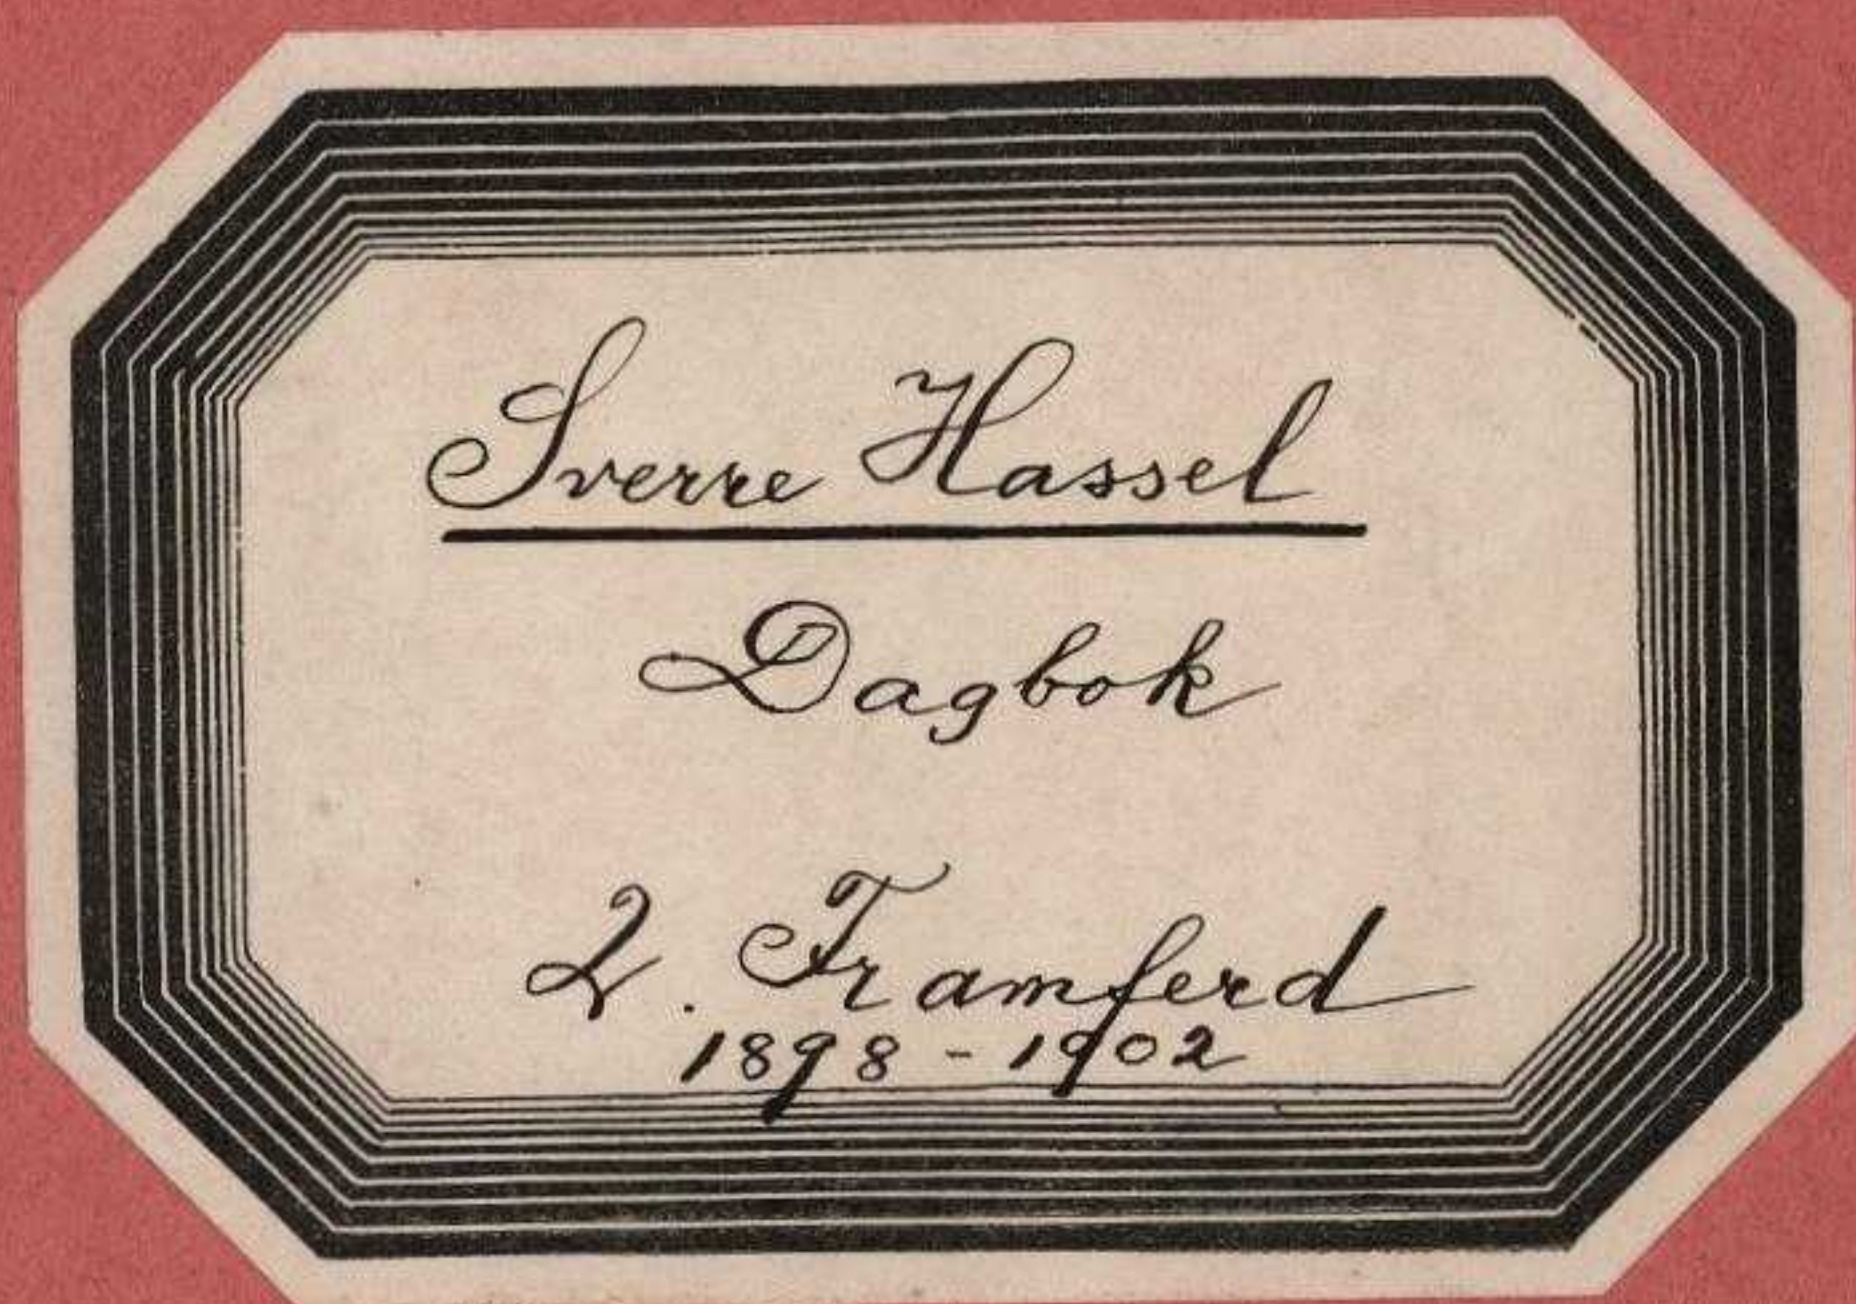 Sverre Hassel
Dagbok
2. Framferd
1898 - 1902